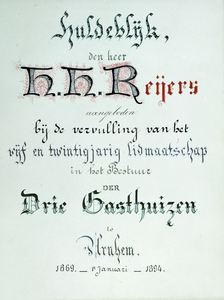 Huldeblijk,
den heer
H. H. Reijers
aangeboden
bij de vervulling van het
vijf en twintigjarig lidmaatschap
in het Bestuur
DER
Drie Gasthuizen
te
Arnhem.
1869. — 1 Januari — 1894.